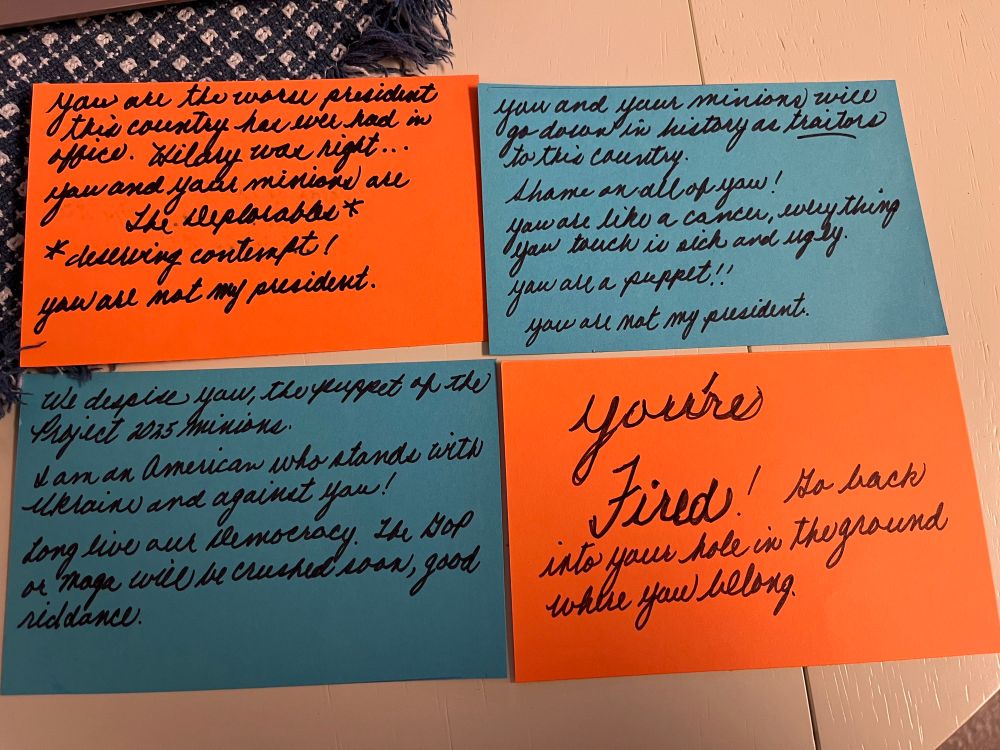 You are the worse president
this country has ever had in
office. Hilary was right...
you and your minions are
The Deplorables*
*deserving contempt!
you are not my president.
you and your minions will
go down in history as traitors
to this country.
Shame on all of you!
you are like a cancer, everything
you touch is sick and ugly.
you are a puppet!!
you are not my president.
We despise you, the puppet of the
Project 2025 minions.
I am an American who stands with
Ukraine and against you!
Long live our Democracy. The GOP
or Maga will be crushed soon, good
riddance.
you're
Fired! Go back
into your hole in the ground
where you belong.